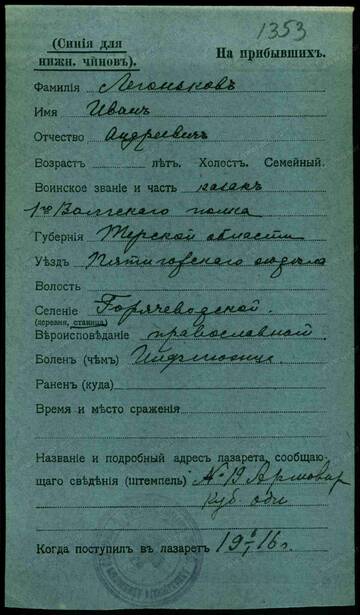 1353
(Синія для
нижн. чиновъ).
На прибывшихъ.
Фамилія Легоньковъ
Имя Иванъ
Отчество Андреевичъ
Возрастъ лѣтъ. Холост. Семейный.
Воинское званіе и часть казакъ
1го Волгскаго полка
Губернія Терской области
Уѣздъ Пятигорскаго отдѣла
Волость
Селеніе Горячеводской.
(деревня, станица)
Вѣроисповѣданіе православной
Боленъ (чѣмъ) Инфлюэнца
Раненъ (куда)
Время и мѣсто сраженія
Названіе и подробный адресъ лазарета, сообщаю-
щаго свѣдѣнія (штемпель) № 19 Армавир
Куб. обл
Когда поступилъ въ лазаретъ 19 1/I 16 г.